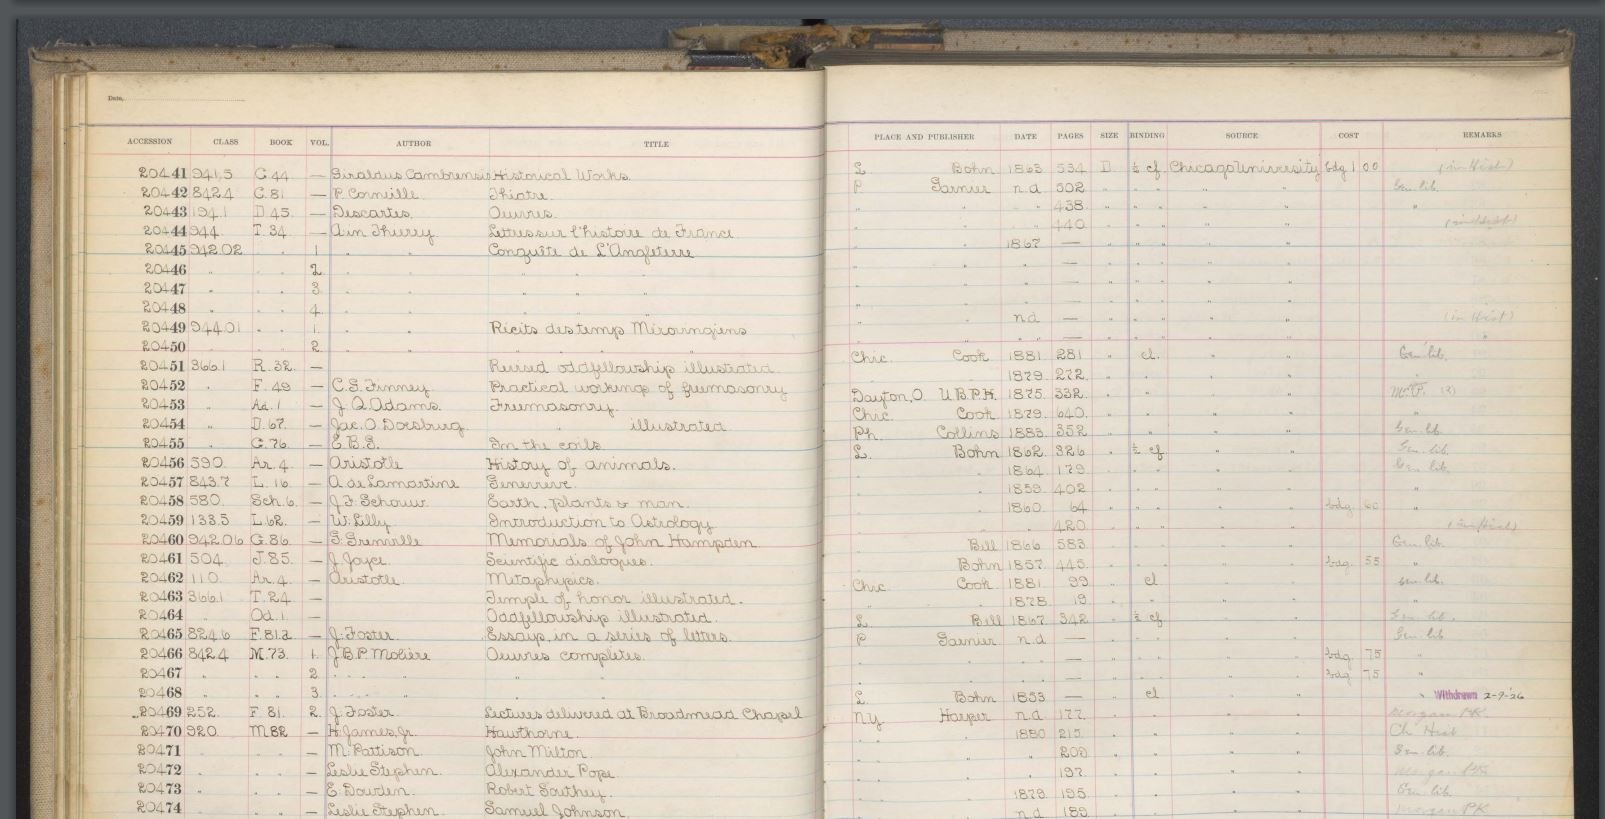 Date,
ACCESSION CLASS BOOK VOL. AUTHOR TITLE PLACE AND PUBLISHER DATE PAGES SIZE BINDING SOURCE COST REMARKS
20441 941.5 G.44 — Giraldus Cambrensis Historical Works. L. Bohn 1863 534 D ½ cf. Chicago University bdg 1 00 (in Hist)
20442 842.4 C.81 — P. Corneille. Théatre. P. Garnier n.d 502 " " " " " Gen. lib.
20443 194.1 D.45. — Descartes. Oeuvres. " " " 438 " " " " " "
20444 944. T.34 — A'in Thierry. Lettres sur l'histoire de France " " " 440 " " " " "
20445 942.02 " " 1. " " Conquête de L'Angleterre " " 1867 — " " " " "
20446 " " " 2. " " " " " " " " — " " " " "
20447 " " " 3. " " " " " " " " — " " " " "
20448 " " " 4. " " " " " " " " — " " " " "
20449 944.01 " " 1. " " Récits des temp Mérovingiens " " n.d — " " " " " (in Hist)
20450 " " " 2 " " " " " " " " " — " " " " " "
20451 366.1 R.32. — Revised oddfellowship illustrated. Chic. Cook 1881 281 " cl. " " Gen. lib.
20452 " F.49 — C.G. Finney. Practical workings of freemasonry " " 1879 272 " " " " "
20453 " Ad.1 — J.Q. Adams. Freemasonry. Dayton, O. U.B.P.H. 1875. 332. " " " "
20454 " D.67. — Jac. O. Doesburg. " illustrated. Chic. Cook 1879. 640. " " " " "
20455 " G.76. — E.B.G. In the coils. Ph. Collins 1883. 352 " " " " Gen. lib.
20456 590. Ar.4. — Aristotle History of animals. L. Bohn 1862. 326 " ½ cf. " " Gen. lib.
20457 843.7 L.16. — A de Lamartine Genevieve. " " 1864. 179. " " " " " Gen. lib.
20458 580. Sch.6. — J.F. Schouw. Earth, plants & man. " " 1859. 402 " " " " " "
20459 133.5 L.62. — W. Lilly. Introduction to Astrology " " 1860. 64 " " " " " bdg. 60 "
20460 942.06 G.86. — G. Grenville Memorials of John Hampden. " " " 420 " " " " " (in Hist)
20461 504. J.85. — J. Joyce. Scientific dialogues. " Bell 1866 583. " " " " " Gen. lib.
20462 110. Ar.4. — Aristotle. Metaphysics. " Bohn 1857. 445. " " " " " bdg. 55 "
20463 366.1 T.24. — Temple of honor illustrated. Chic. Cook 1881 99 " cl " " Gen. lib.
20464 " Od.1. — Oddfellowship illustrated. " " 1878. 19 " " " " "
20465 824.6 F.81.2. — J. Foster. Essays, in a series of letters. L. Bell 1867. 342 " ½ cf " " Gen. lib.
20466 842.4 M.73. 1. J.B.P. Molière Oeuvres completes. P Garnier n.d — " " " " " Gen. lib
20467 " " " 2. " " " " " " " " — " " " " " bdg. 75 "
20468 " " " 3. " " " " " " " " — " " " " " bdg 75 "
20469 252. F 81. 2. J. Foster. Lectures delivered at Broadmead Chapel L. Bohn 1853 — " cl " " " Withdrawn 2-9-26
20470 920. M.82 — H. James, Jr. Hawthorne. N.Y. Harper n.d 177. " " " " Morgan PK.
20471 " " — M. Pattison. John Milton. " " 1880 215. " " " " Ch Hist
20472 " " — Leslie Stephen. Alexander Pope. " " " 200 " " " " Gen. lib.
20473 " " — E. Dowden. Robert Southey. " " " 197. " " " " Morgan PK
20474 " " — Leslie Stephen. Samuel Johnson. " " 1879. 195. " " " " Gen. lib.
n.d 189. " " " " Morgan PK